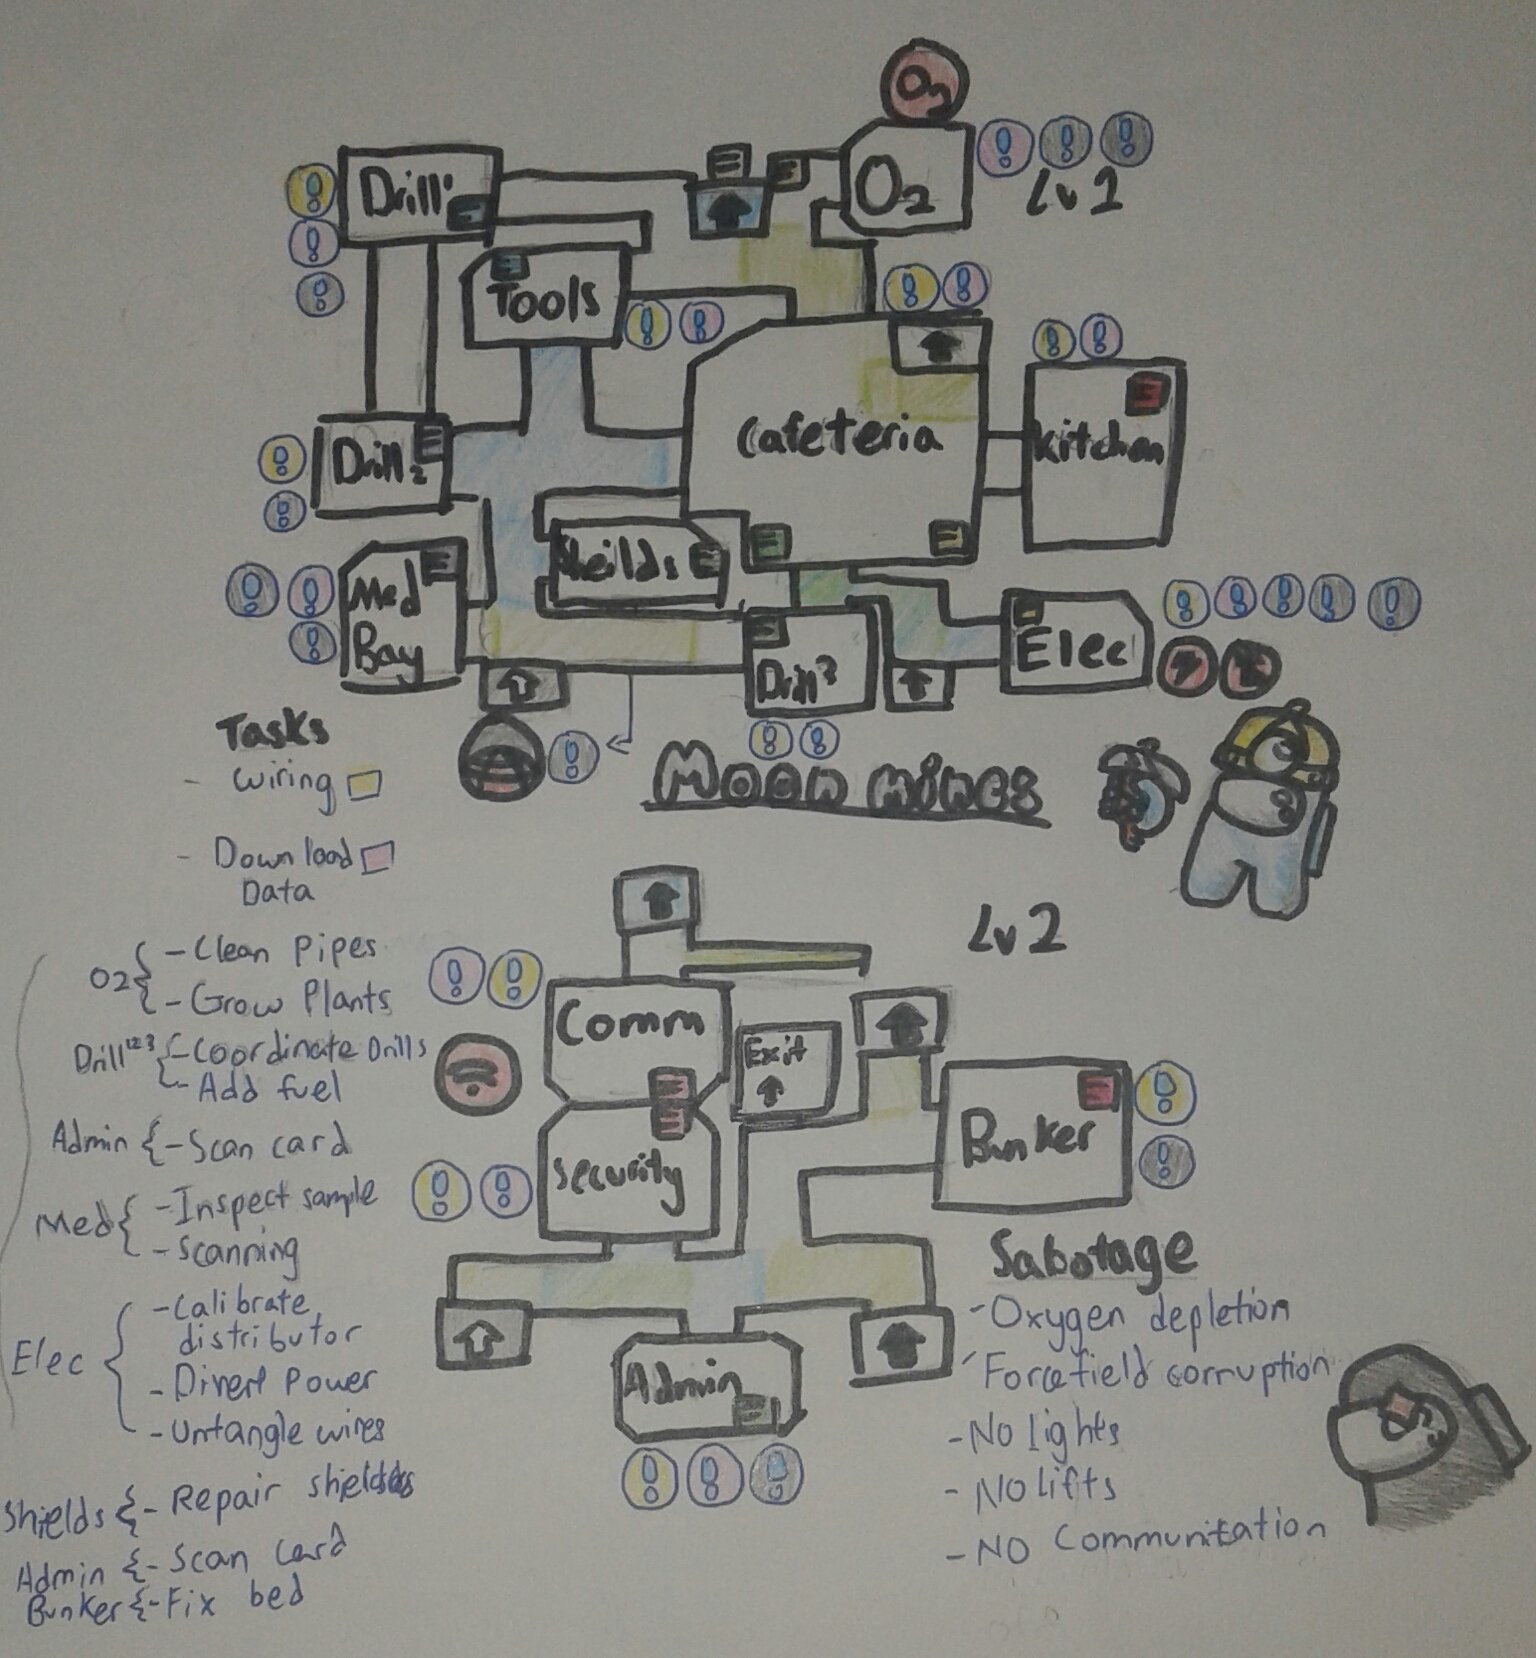 O2
Drill1
O2
Lv 1
Tools
Cafeteria
Kitchen
Drill2
Sheilds
Med
Bay
Drill3
Elec
Moon mines
Tasks
- Wiring
- Download
Data
O2 { - Clean Pipes
- Grow Plants
Drill123 { - Coordinate Drills
- Add fuel
Admin { - Scan card
Med { - Inspect sample
- Scanning
Elec { - Calibrate
distributor
- Divert Power
- Untangle wires
Shields { - Repair shields
Admin { - Scan card
Bunker { - Fix bed
Lv 2
Comm
Exit
Security
Bunker
Admin
Sabotage
- Oxygen depletion
- Forcefield corruption
- No lights
- No lifts
- NO Communitation